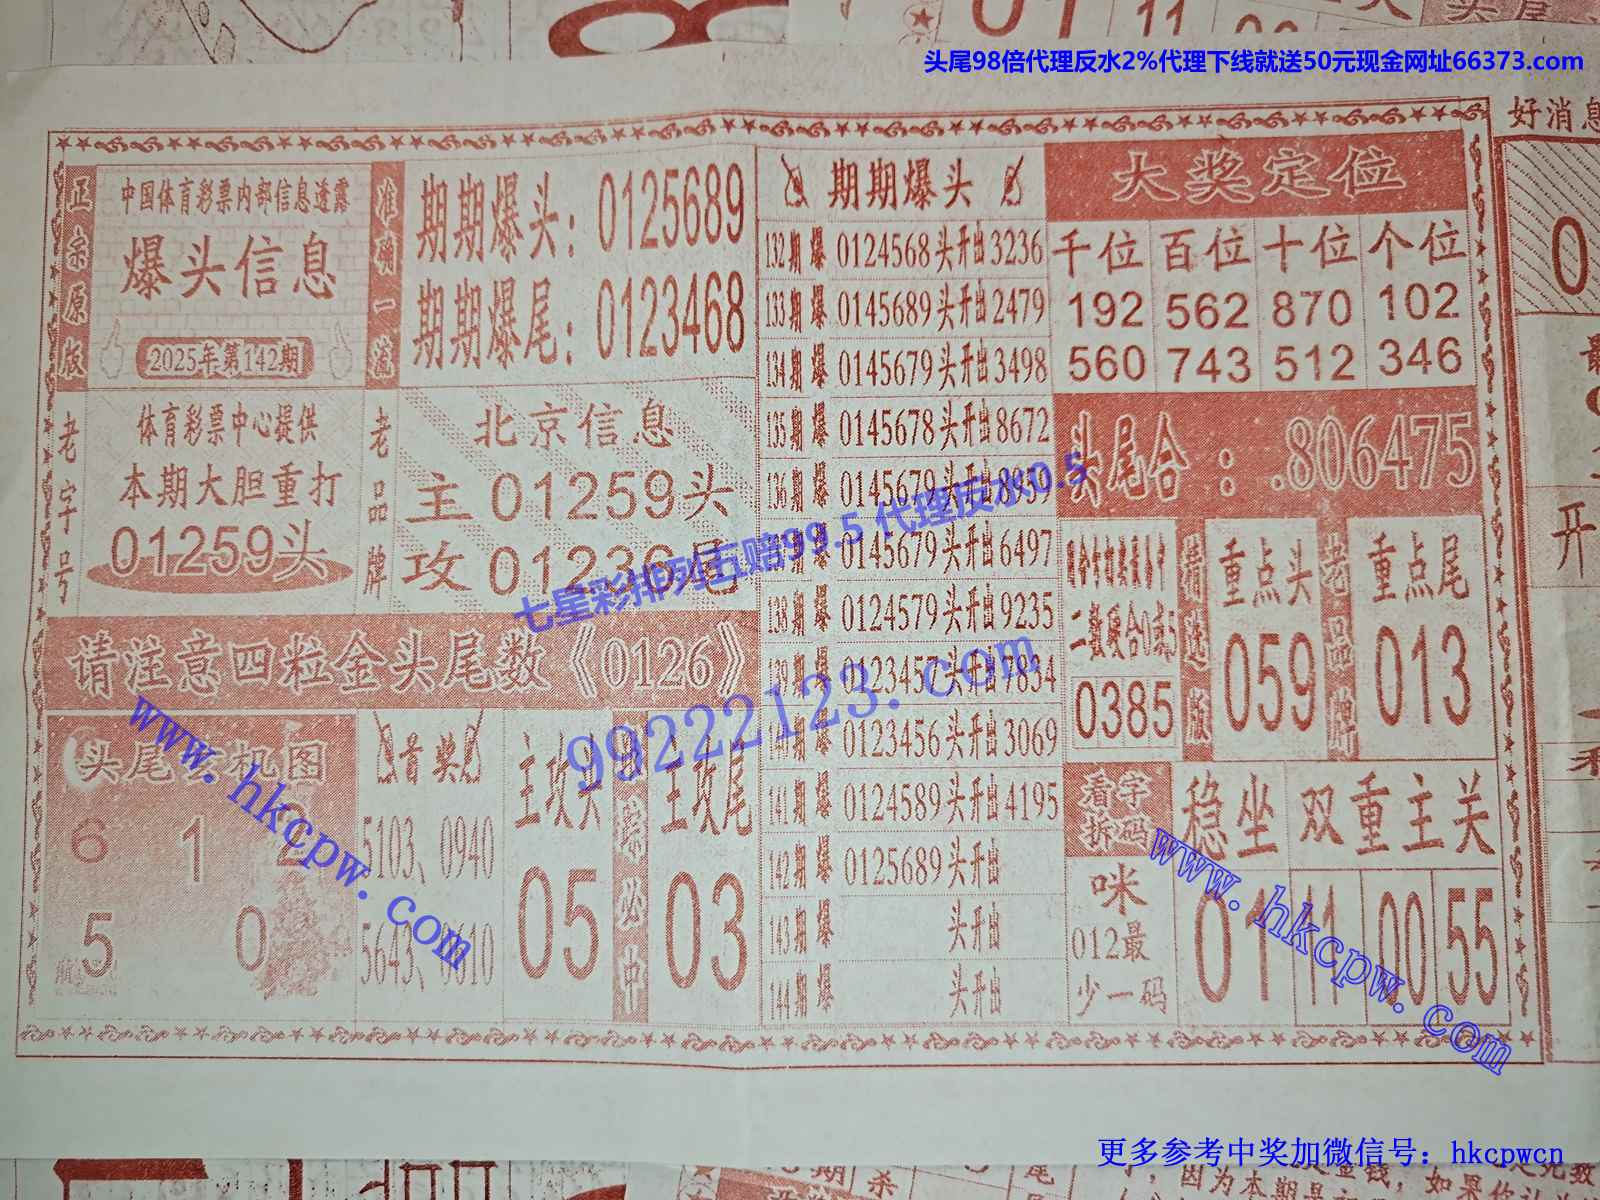 头尾98倍代理反水2%代理下线就送50元现金网址66373.com
好消息
正宗原版
中国体育彩票内部信息透露
爆头信息
2025年第142期
准确一流
期期爆头：0125689
期期爆尾：0123468
老字号
体育彩票中心提供
本期大胆重打
01259头
老品牌
北京信息
主01259头
攻01236尾
请注意四粒金头尾数《0126》
头尾玄机图
6 1 2
5 0
首奖
5103、0940
5643、0610
主攻头
05
综必中
主攻尾
03
期期爆头
132期爆0124568头开出3236
133期爆0145689头开出2479
134期爆0145679头开出3498
135期爆0145678头开出8672
136期爆0145679头开出8950
137期爆0145679头开出6497
138期爆0124579头开出9235
139期爆0123457头开出7834
140期爆0123456头开出3069
141期爆0124589头开出4195
142期爆0125689头开出
143期爆 头开出
144期爆 头开出
大奖定位
千位 百位 十位 个位
192 562 870 102
560 743 512 346
头尾合：.806475
二数段合0或5
0385
精选版
重点头
059
老品牌
重点尾
013
看字拆码
咪
012最
少一码
稳坐 双重主关
01 11 00 55
开
七星彩排列五赔99.5 代理反水0.5
99222123.com
www.hkcpw.com
www.hkcpw.com
更多参考中奖加微信号：hkcpwcn